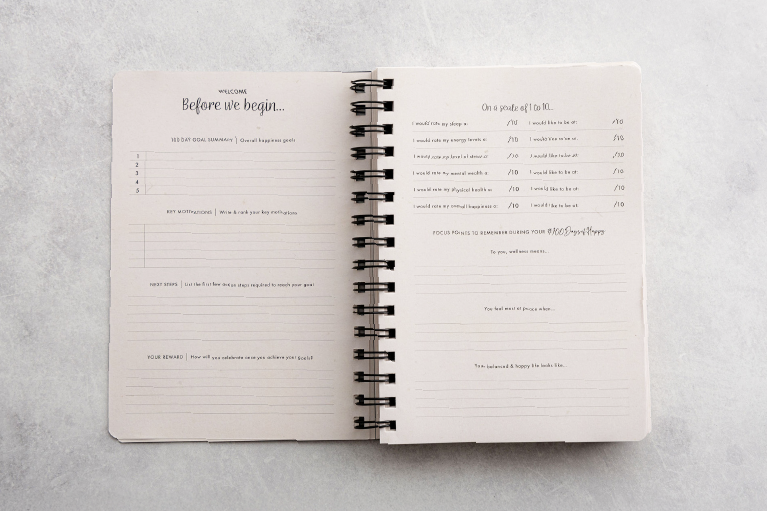 WELCOME
Before we begin...
100 DAY GOAL SUMMARY | Overall happiness goals
1
2
3
4
5
KEY MOTIVATIONS | Write & rank your key motivations
NEXT STEPS | List the first few action steps required to reach your goal
YOUR REWARD | How will you celebrate once you achieve your goals?
On a scale of 1 to 10...
I would rate my sleep a: /10 I would like to be at: /10
I would rate my energy levels a: /10 I would like to be at: /10
I would rate my level of stress a: /10 I would like to be at: /10
I would rate my mental health a: /10 I would like to be at: /10
I would rate my physical health a: /10 I would like to be at: /10
I would rate my overall happiness a: /10 I would like to be at: /10
FOCUS POINTS TO REMEMBER DURING YOUR #100DaysofHappy
To you, wellness means...
You feel most at peace when...
Your balanced & happy life looks like...